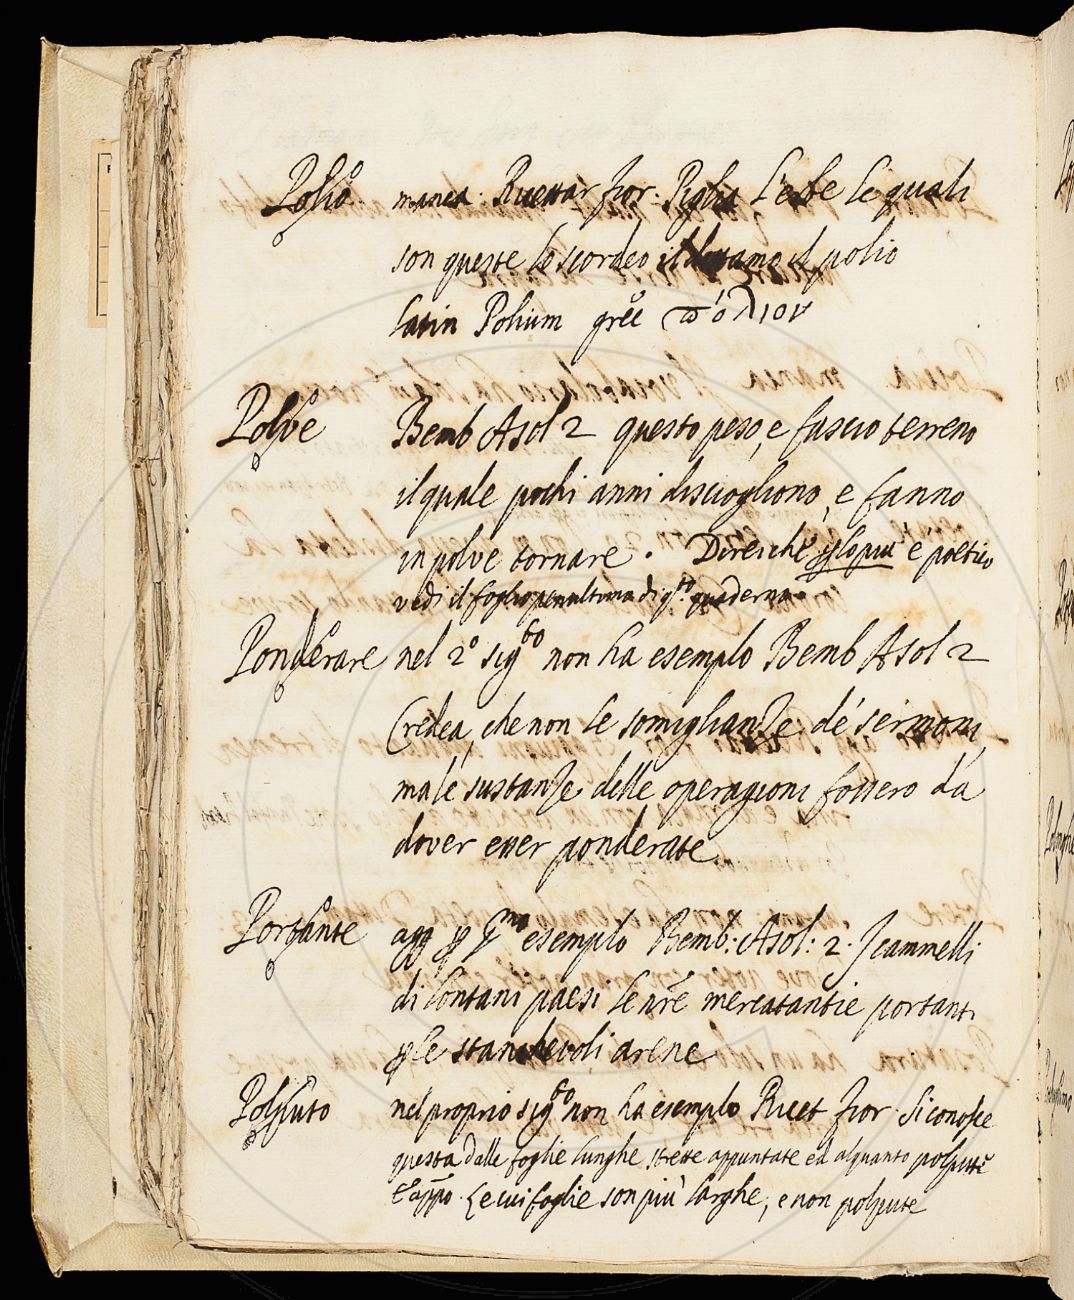 Polio manca. Ricettar fior: Piglia l'erbe le quali
son queste lo scordeo il dittamo il polio
latin Polium grec πόλιον
Polve Bemb Asol 2 questo peso, e fascio terreno
il quale pochi anni disciogliono, e fanno
in polve tornare. Direi che p lo più è poetico
vedi il foglio penultimo di qto quaderno
Ponderare nel 2º sigto non ha esemplo Bemb Asol 2
Credea, che non le somiglianze de' sermoni,
ma le sustanze delle operagioni fossero da
dover esser ponderate
Portante agg p esemplo Bemb: Asol: 2. I cammelli
di lontani paesi le nre mercatantie portanti
p le stanchevoli arene
Polputo nel proprio sigto non ha esemplo Ricet fior. Si conosce
questa dalle foglie lunghe strette appuntate ed alquanto polpute
E appo. Le cui foglie son più larghe, e non polpute